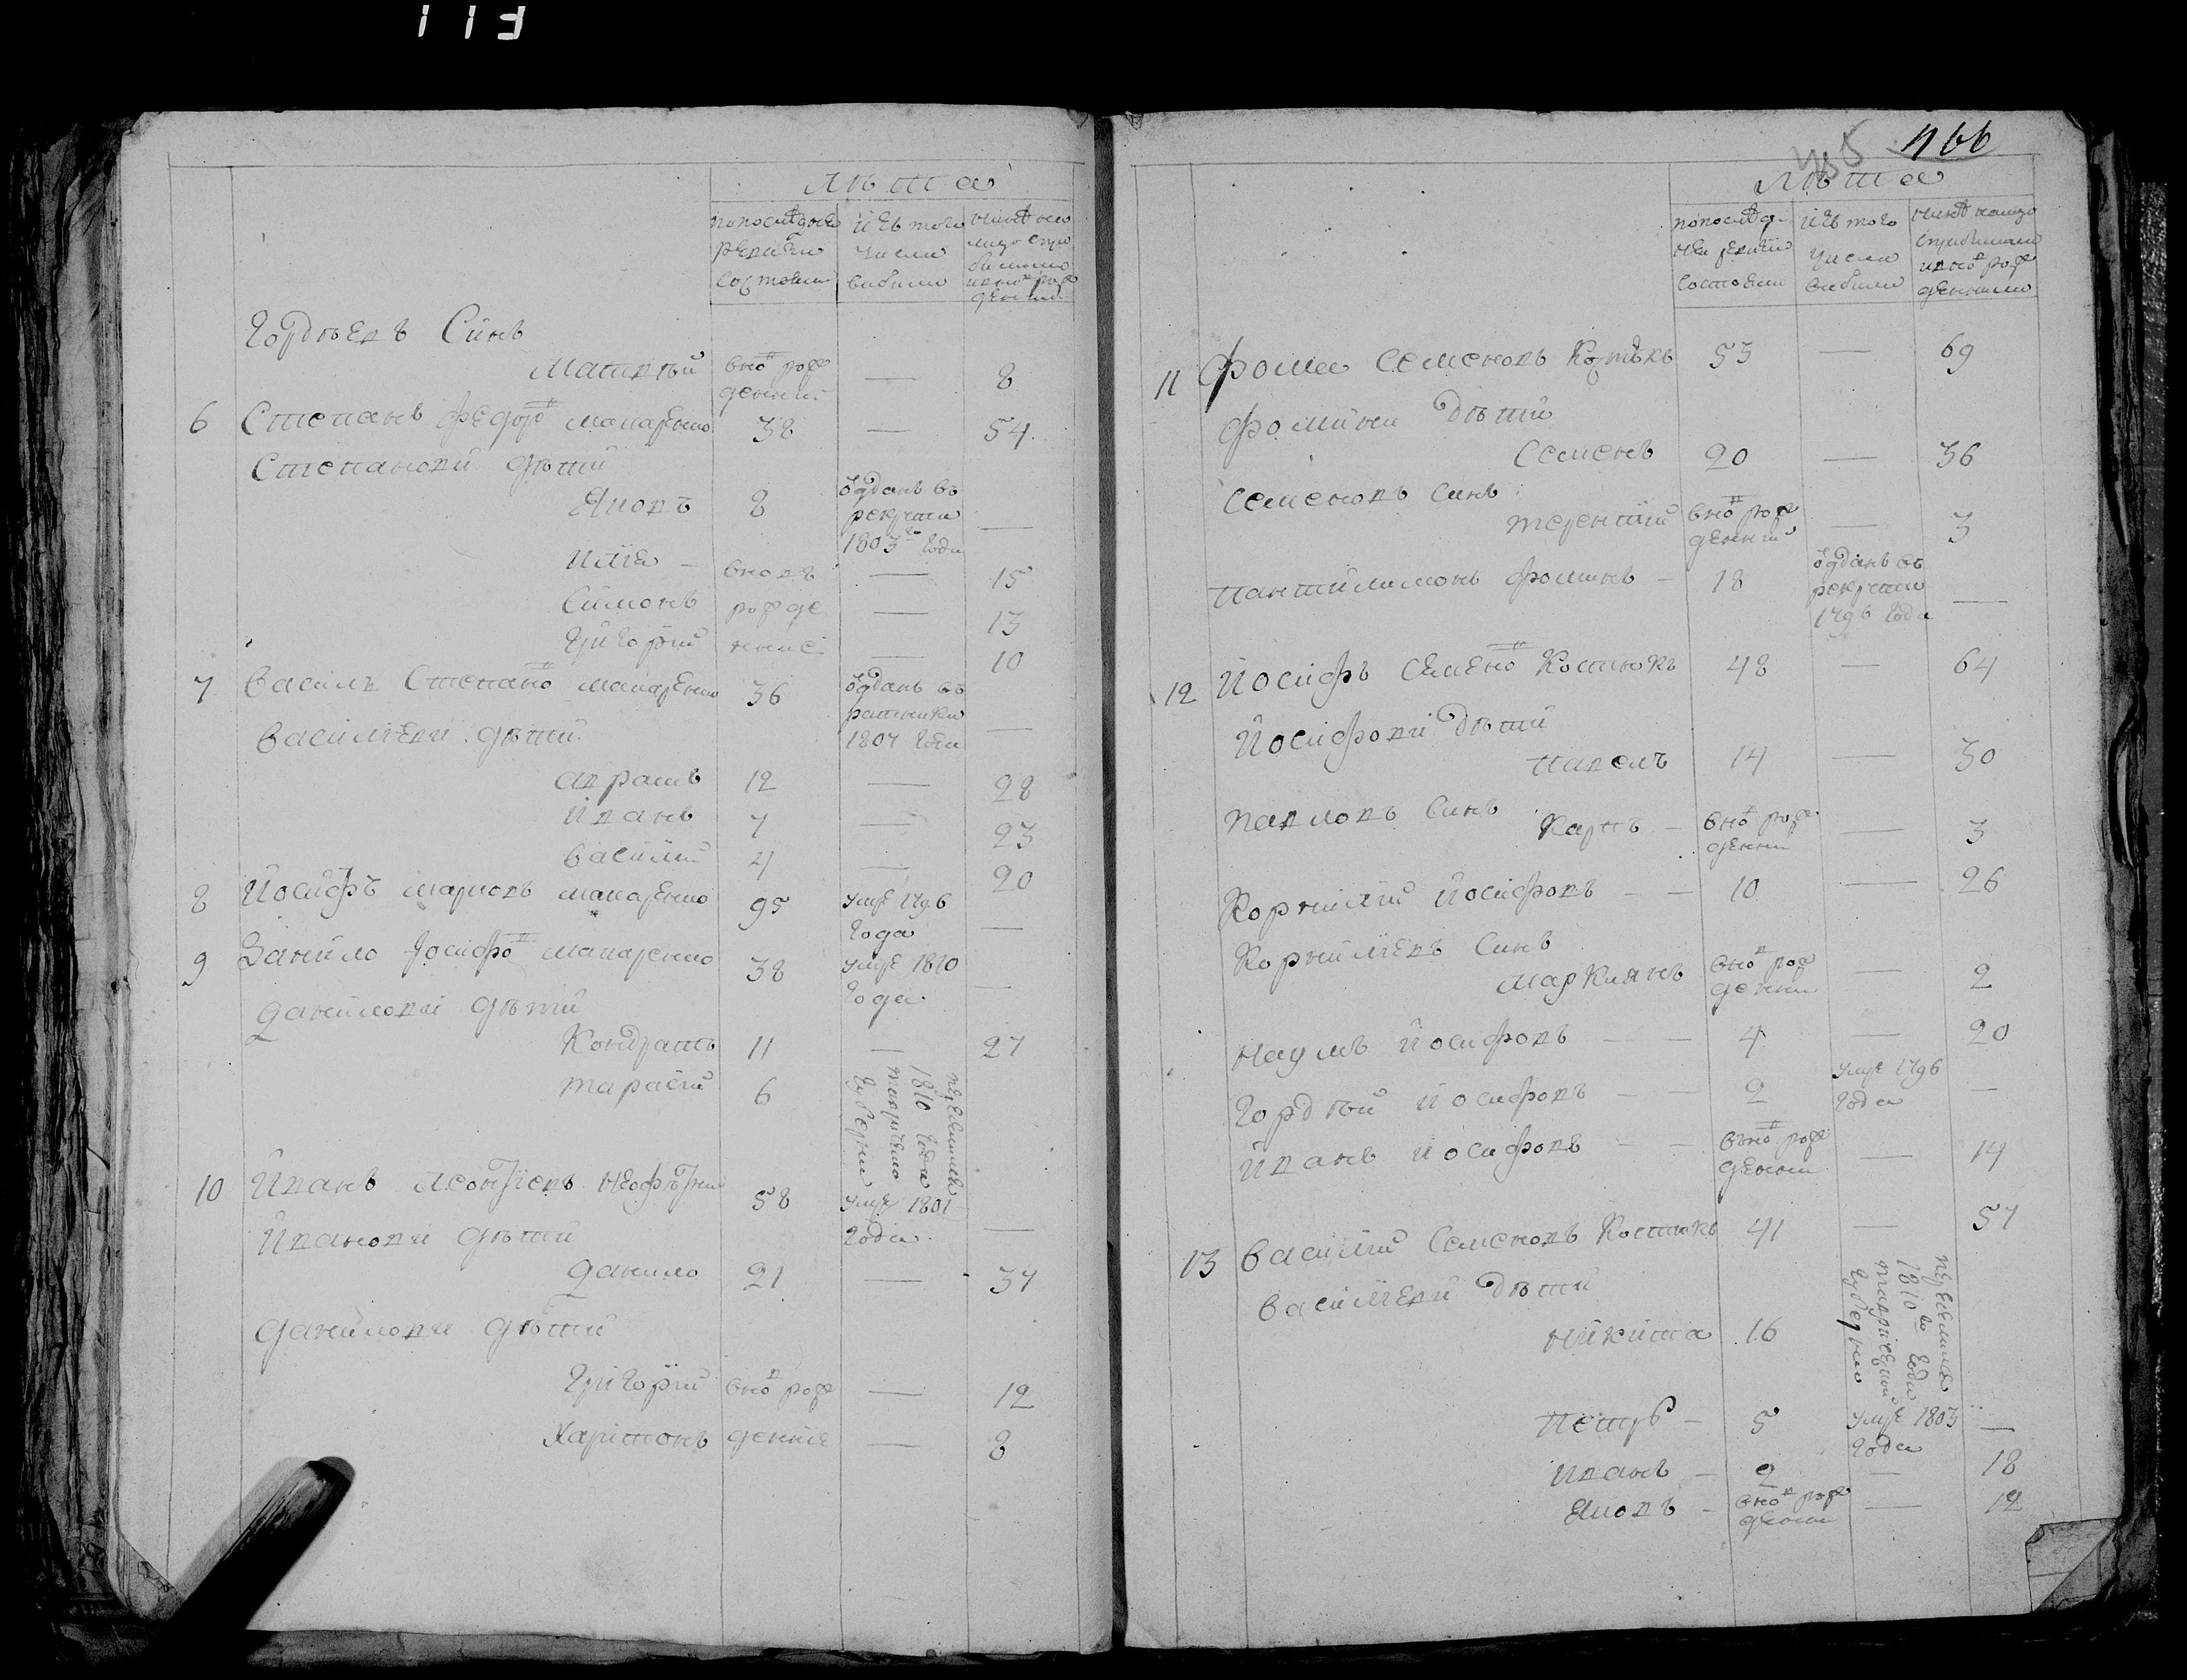 113
Лѣта
попоследней ревизии состояли
изъ того числа выбыло
ныне на лицо съ прибылыми и вновь рожденными
Гордѣевъ Синъ
Матвѣй вновь рожденний — 8
6 Степанъ Федоров Макаренко 38 — 54
Степанови дѣти
Яковъ 8 — 
оданъ въ
рекрути
1803го года
Илїя — вновъ — 15
Симонъ рожде — 13
Григорїй ннїе — 10
7 Василь Степанов Макаренко 36 —
оданъ въ
ратники
1807 года
Василїеви дѣти
Аврамъ 12 — 28
Иванъ 7 — 23
Василий 4 — 20
8 Иосифъ Марковъ Макаренко 95 умре 1796 —
года
9 Данило Йосифов Макаренко 38 умре 1810 —
года
Данилови дѣти
Кондратъ 11 — 27
Тарасий 6
1810 года
10 Иванъ Леонтїевъ 58 умре 1801 —
Иванови дѣти года
Данило 21 — 37
Данилови дѣти
Григорїй вновь рож — 12
Харитонъ деннїе — 8
466
Лѣта
попоследней ревизии состояли
изъ того числа выбыли
11 Фома Семеновъ 53 — 69
Фомини Дѣти
Семенъ 20 — 36
Семеновъ синъ
Терентїй вновь рожденний — 3
Пантилимонъ Фоминъ — 18 —
оданъ въ
рекрути
1796 года
12 Иосифъ Семенов Костюкъ 48 — 64
Иосифови Дѣти
Павелъ 14 — 30
Павловъ Синъ
Карпъ — вновь рожденний — 3
Корнилїй Иосифовъ — — 10 — 26
Корнилїевъ Синъ
Маркиянъ вновь рожденни — 2
Наумъ Иосифовъ — — 4 — 20
Гордѣй Иосифовъ — — 2 умре 1796 —
года
Иванъ Иосифовъ — — вновь рожденни — 14
13 Василїй Семеновъ Костюкъ 41 — 57
Василїеви Дѣти
Никита 16
1810го года
Петръ — 5 умре 1803 —
года
Иванъ — 2 — 18
Яковъ — вновь рожденни — 12